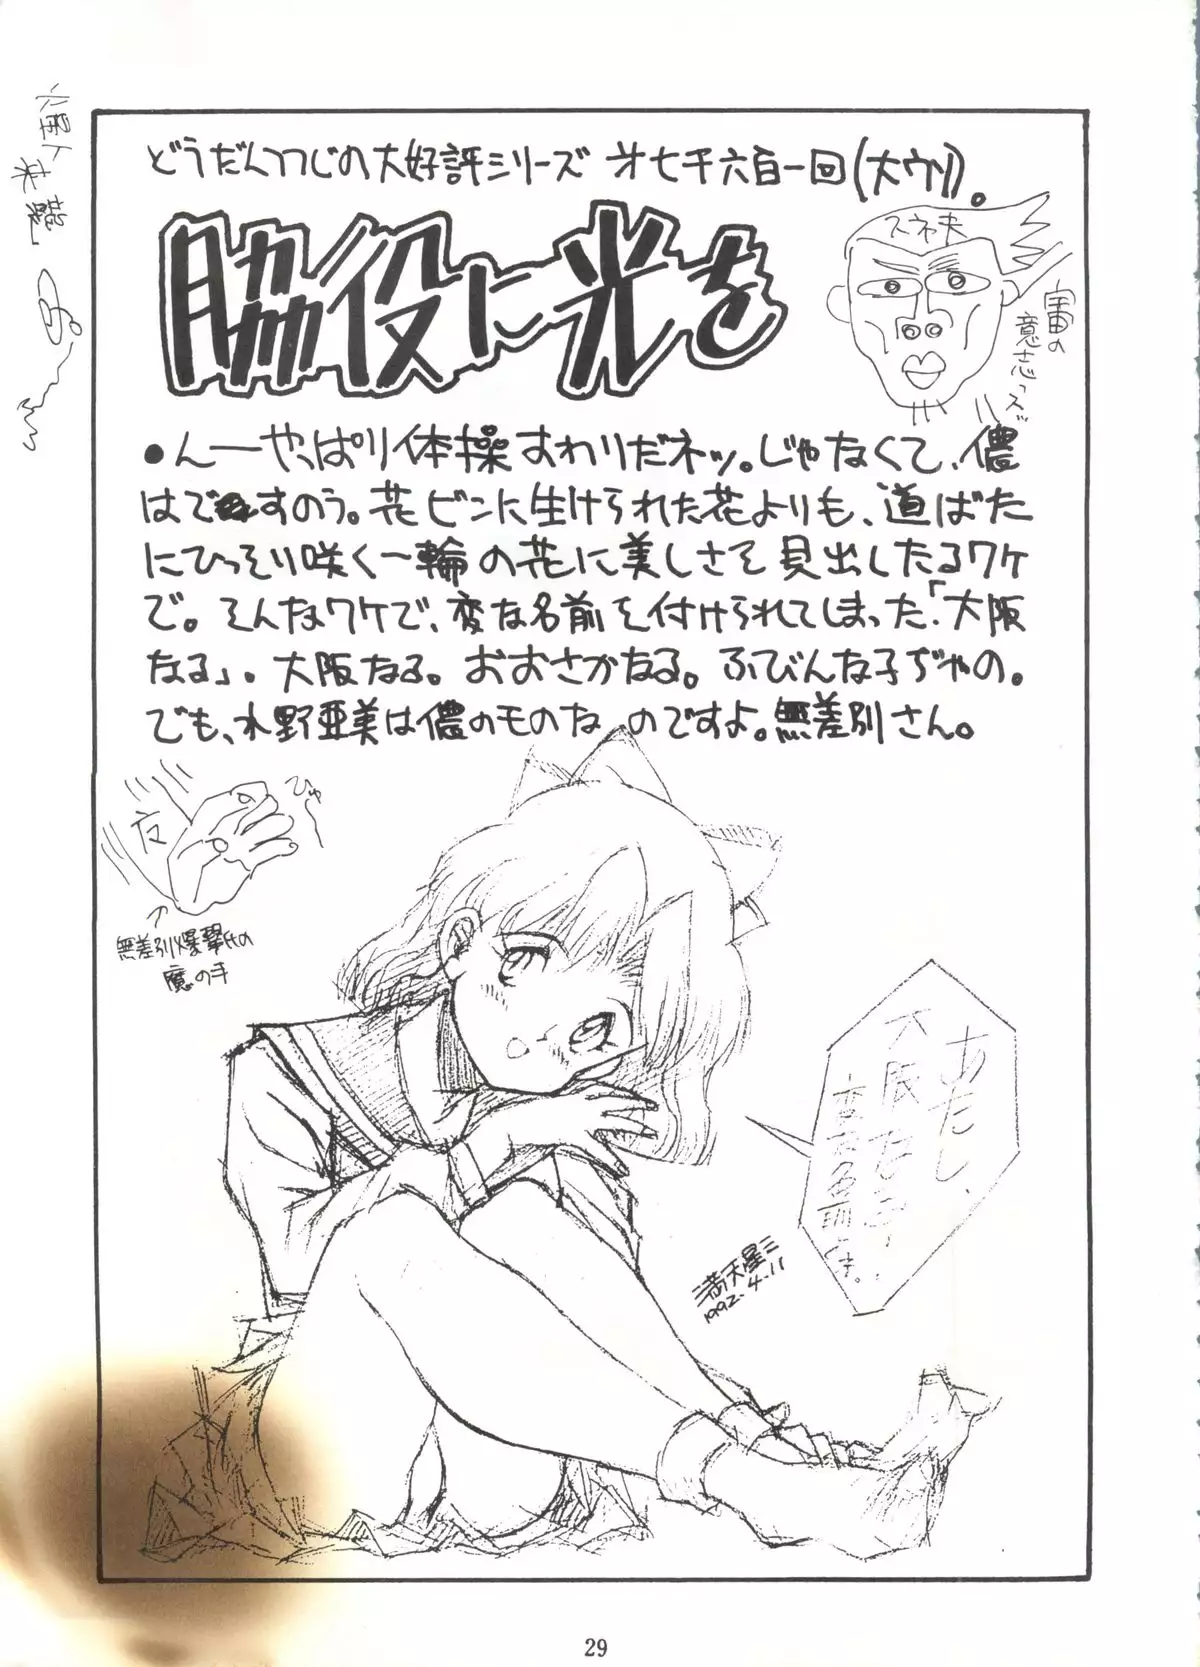 どうだんつつじの大好評シリーズ 才七千六百一回(大ウソ)。
脇役に光を
スネ夫
宇宙の
意志っスッ
●んーやっぱり体操すわりだネッ。じゃなくて、儂
はですのう。花ビンに生けられた花よりも、道ばた
にひっそり咲く一輪の花に美しさを見出したるワケ
で。そんなワケで、変な名前を付けられてしまった「大阪
なる」。大阪なる。おおさかなる。ふびんな子ぢゃの。
でも、水野亜美は儂のものなのですよ。無差別さん。
ひゅー
無差別爆撃氏の
魔の手
あたし、
大阪なる!
変な名前よ。
満天星三
1992.4.11
29